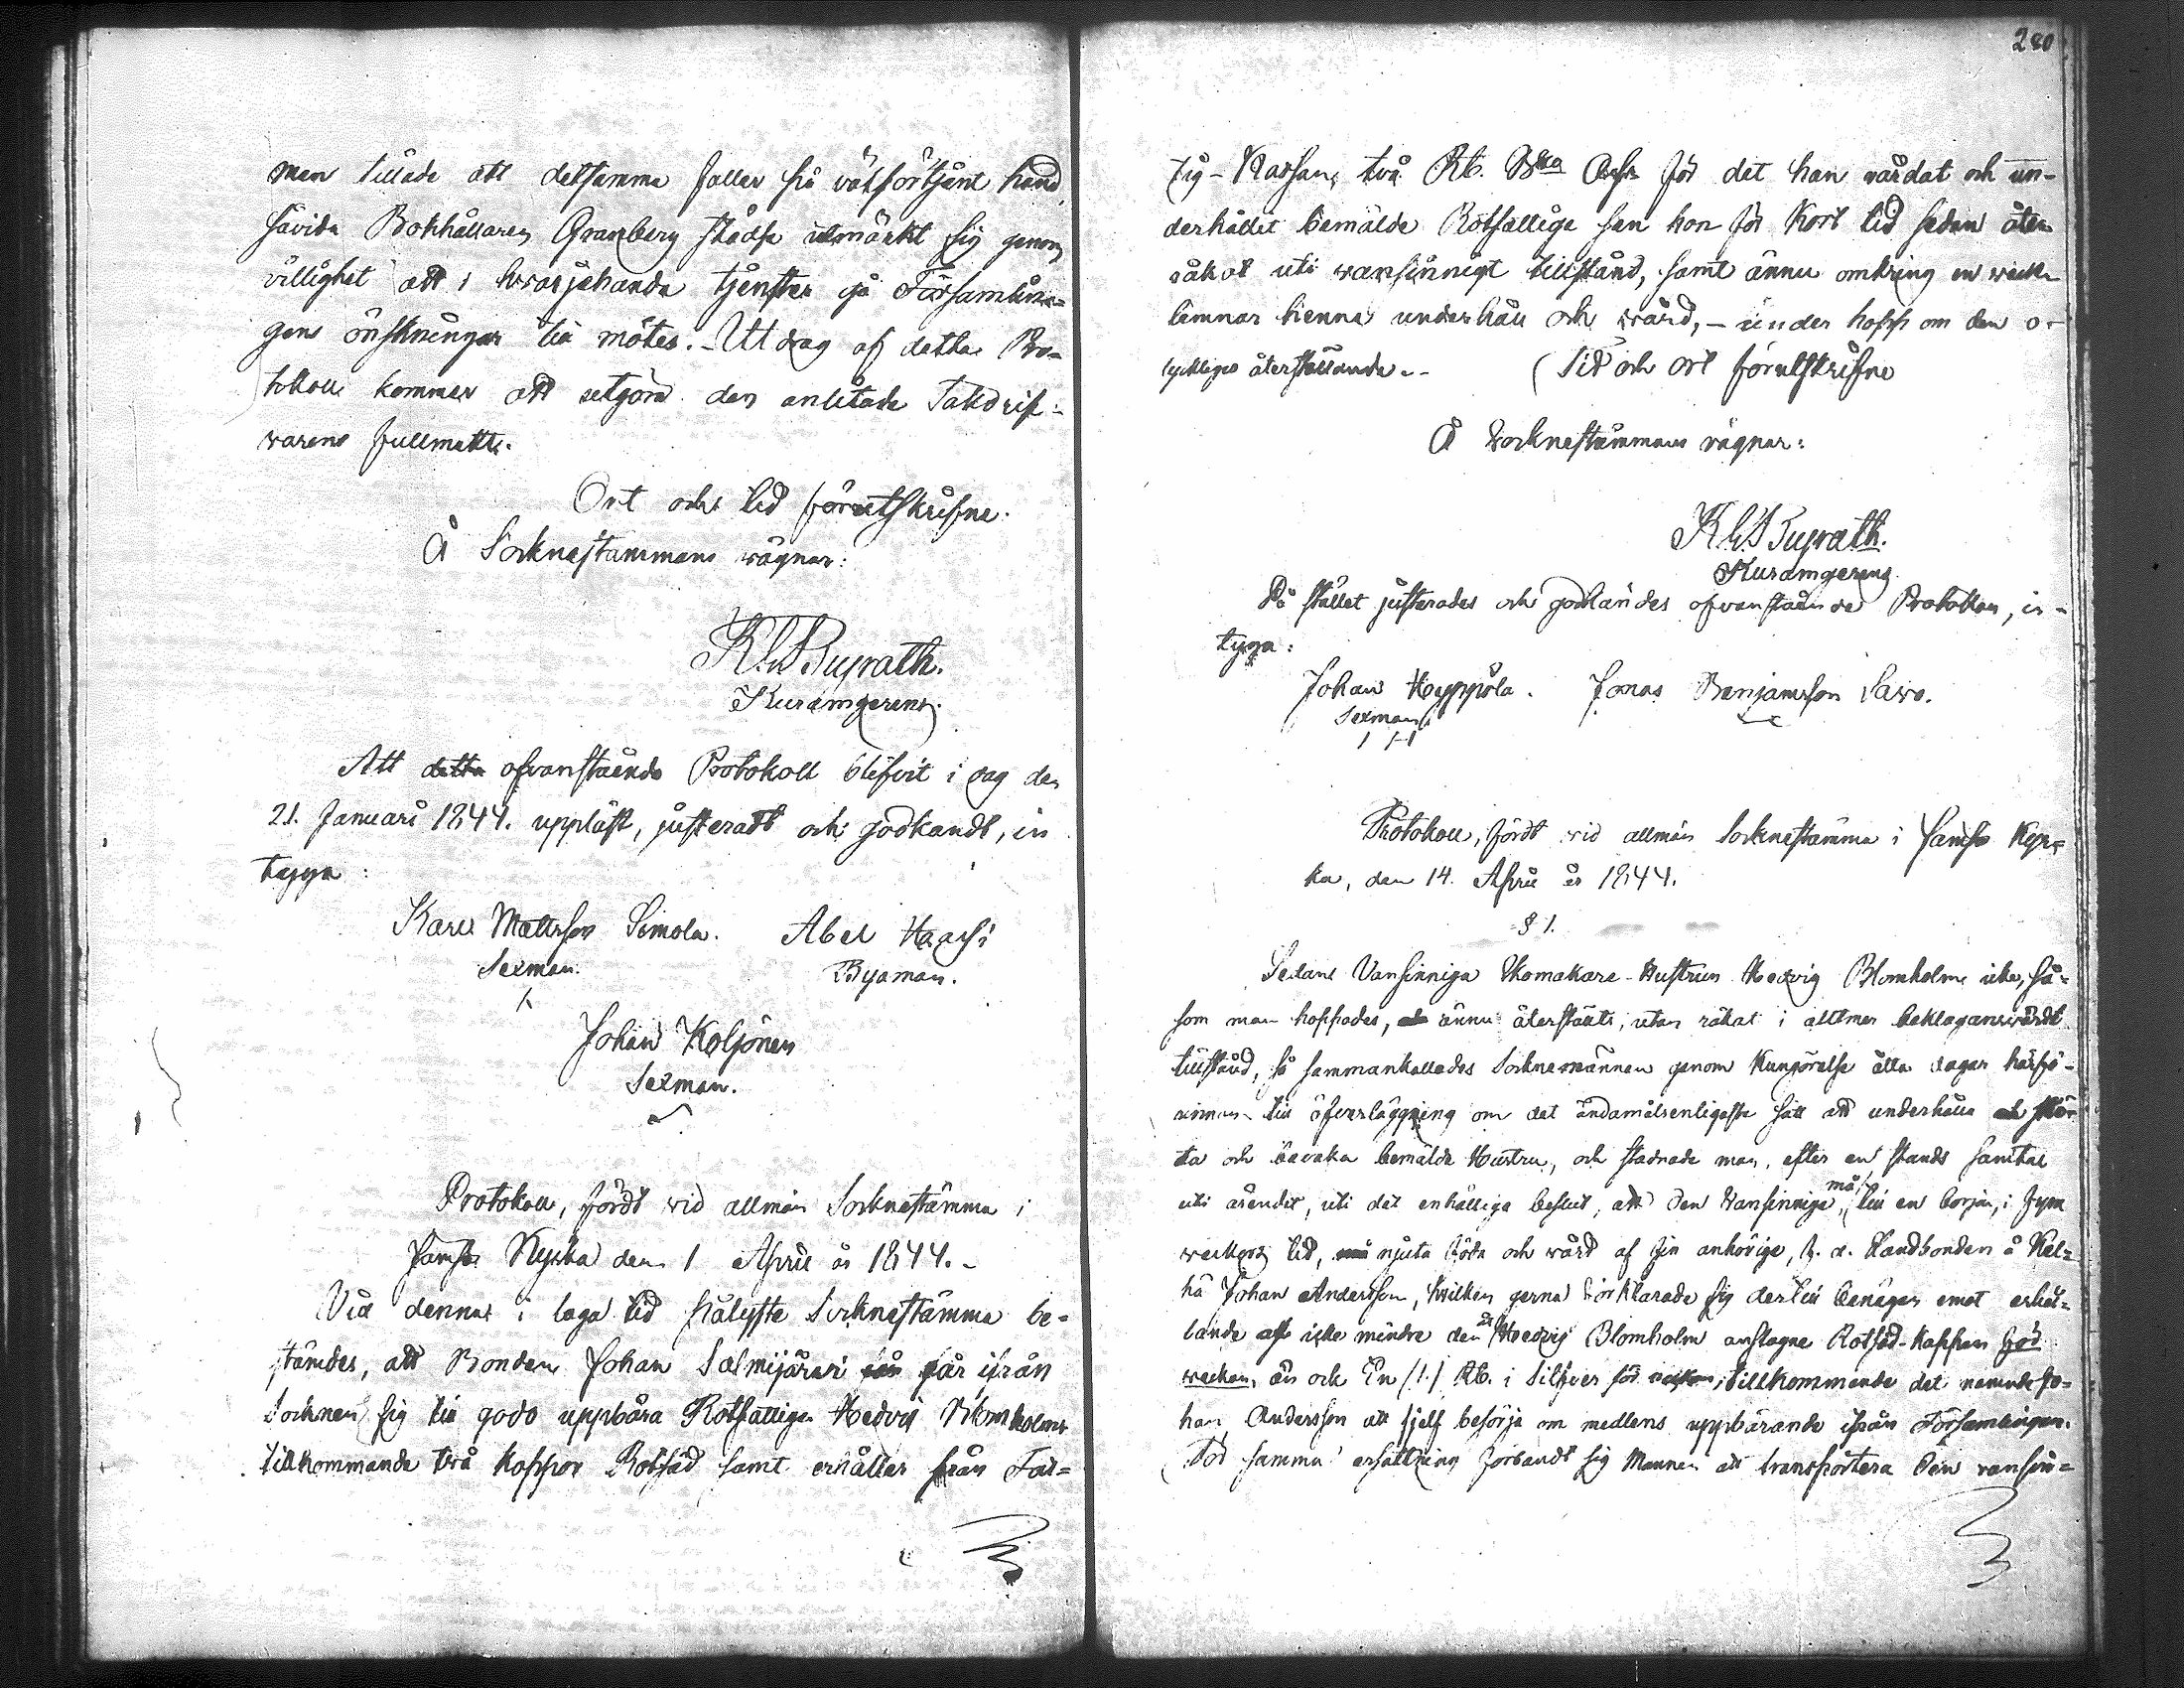 men tillade att detsamma faller på wälförtjänt hand
såvida Bokhållaren Granberg städse utmärkt sig genom
villighet att i hvarjehanda tjenster gå Församlin-
gens önskningar till mötes. Utdrag af detta Pro-
tokoll kommer att utgöra den antetade Takdrif-
varens fullmakt.
Ort och tid förutskrifne.
Å Socknestämmans wägnar:
K. W. Bugrath.
Kuramgerens.
Att detta ofvanstående Protokoll blifvit i dag den
21. Januari 1844. uppläst, justeradt och godkändt, in
tyga:
Karl Mattsson Simola. Abel Haarsi
Sexman. Byaman.
Johan Koljonen
Sexman.
Protokoll, fördt vid allmän Socknestämma i
Jämsä Kyrka den 1 April år 1844.
Vid denna i laga tid pålyste Socknestämma be-
stämdes, att Bonden Johan Salmijärvi får ifrån
Socknen sig till godo uppbära Rotfattigen Hedvig Blomholms
tillkommande två kappor Rotsäd samt erhåller från Fat-
280
tig-Kassan, två Rb. B:co Ass. för det han vårdat och un-
derhållit bemälde Rotfattige sen hon för kort tid sedan åter
råkat uti wansinnigt tillstånd, samt ännu omkring en wecka
lemnar henne underhåll och wård, - under hopp om den o-
lyckliges återställande.- Tid och ort förutskrifne
Å Socknestämmans vägnar:
K. W. Bugrath.
Kuramgerens
På stället justerades och godkändes ofvanstående Protokoll, in-
tyga:
Johan Hyppölä. Jonas Benjamsson Savo.
Sexman
Protokoll, fördt vid allmän Socknestämma i Jämsä Kyr-
ka, den 14. April år 1844.
§ 1.
Sedan Vansinniga Skomakare-Hustrun Hedvig Blomholm icke, så-
som man hoppades, ännu återställts, utan råkat i alltmer beklagansvärdt
tillstånd, så sammankallades Socknemännen genom Kungörelse åtta dagar härfö-
rinnan till öfverläggning om det ändamålsenligaste sätt att underhålla och skö-
ta och bevaka bemälde Hustru, och stadnade man, efter en stunds samtal
uti ärendet, uti det enhälliga beslut, att den Vansinniga må, till en början, i fyra
weckors tid, må njuta föda och wård af sin anhörige, h. a. Landbonden å Kel-
hä Johan Andersson, hvilken gerna förklarade sig dertill benägen emot erhål-
lande af icke mindre den åt Hedvig Blomholm anslagne Rotsäd-kappan för
weckan, än ock En /1./ Rb. i Silfver för weckan; tillkommande det nämnde Jo-
han Andersson att sjelf besörja om medlens uppbärande ifrån Församlingen.
För samma ersättning förbandt sig Mannen att transportera den vansin-